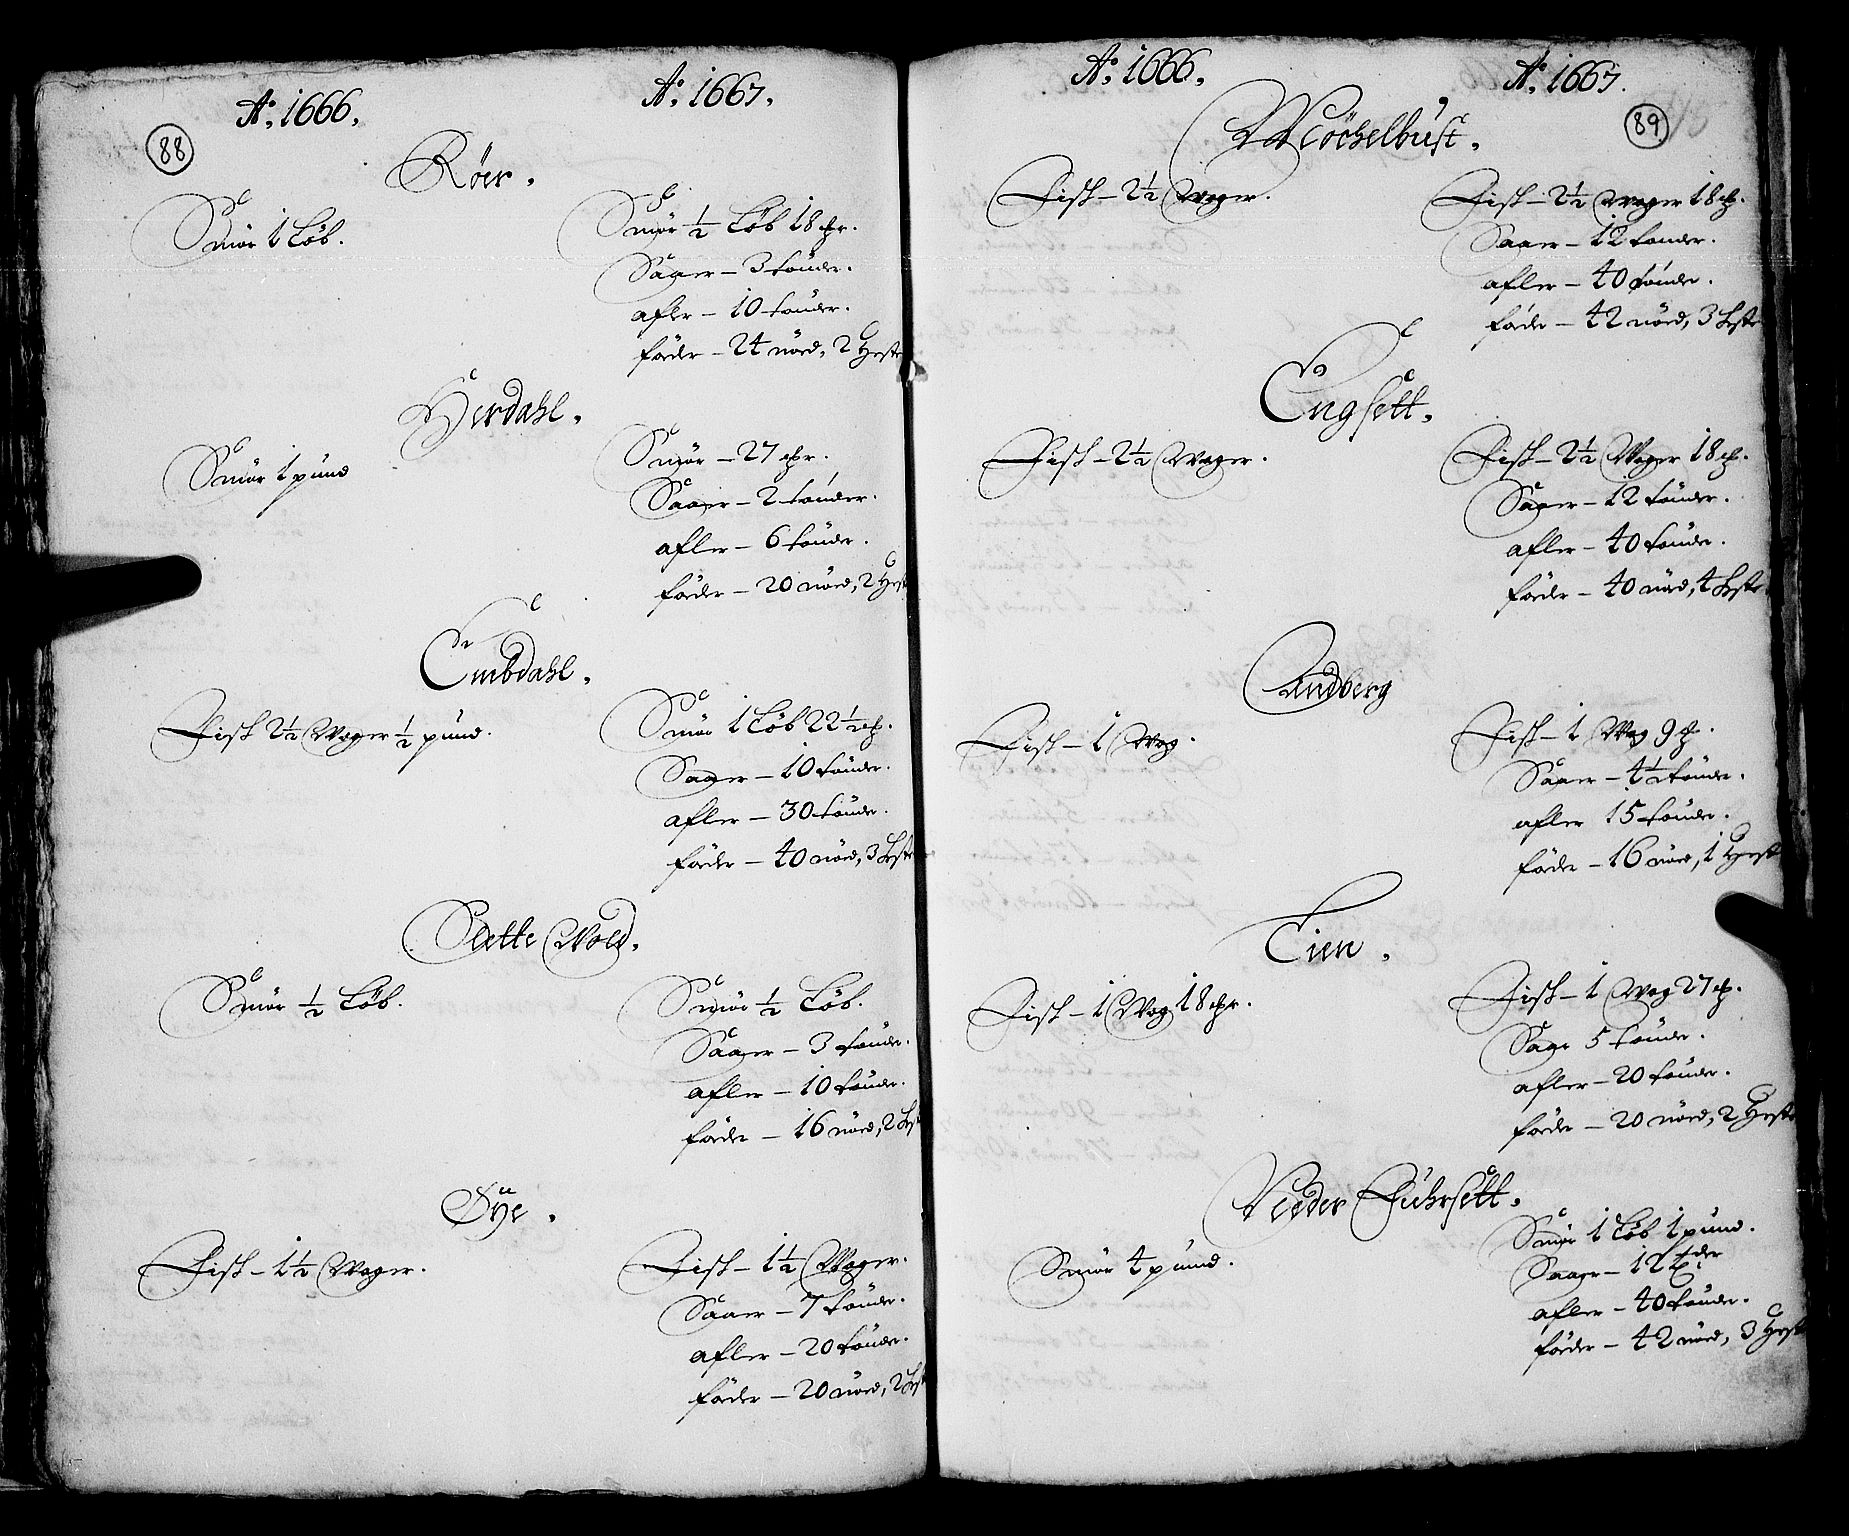 88
Ao. 1666.
Ao. 1667.
Röer.
Smör 1 Löb.
Smör ½ Löb 18 ℔r.
Saaer – 3 tönder.
afler – 10 tönder.
föder – 24 nöed, 2 Heste
Herdahl.
Smör 1 pund
Smör – 27 ℔r.
Saaer – 2 tönder.
afler – 6 tönder.
föder – 20 nöed, 2 Hest
Embdahl.
Fisk 2½ Woger ½ pund.
Smör 1 Löb 22½ ℔.
Saaer – 10 tönder.
afler – 30 tönde.
föder – 40 nöed, 3 Heste
Slette Wold.
Smör ½ Löb.
Smör ½ Löb.
Saaer – 3 tönde.
afler – 10 tönde.
föder – 16 nöed, 2 Hest
Öÿe.
Fisk – 1½ Woger.
Fisk – 1½ Woger.
Saaer – 7 tönde.
afler – 20 tönde.
föder – 20 nöed, 2 Hest
89
Ao. 1666.
Ao. 1667.
Möchelbust.
Fisk – 2½ Woger.
Fisk – 2½ Woger 18 ℔.
Saaer – 12 tönder.
afler – 40 tönde.
föder – 42 nöed, 3 Heste
Engsett.
Fisk – 2½ Woger.
Fisk – 2½ Woger 18 ℔.
Saaer – 12 tönder.
afler – 40 tönde.
föder – 40 nöed, 4 Heste
Andberg
Fisk – 1 Wog.
Fisk – 1 Wog 9 ℔.
Saaer – 4½ tönde.
afler 15 tönde.
föder – 16 nöed, 1 Hest
Tien.
Fisk – 1 Wog 18 ℔r.
Fisk – 1 Wog 27 ℔.
Saae 5 tönde.
afler – 20 tönde.
föder – 20 nöed, 2 Heste
Neder Fuhrsett.
Smör 4 pund.
Smör 1 Löb 1 pund.
Saaer – 12 Tder
afler – 40 tönde.
föder – 42 nöed, 3 Hest